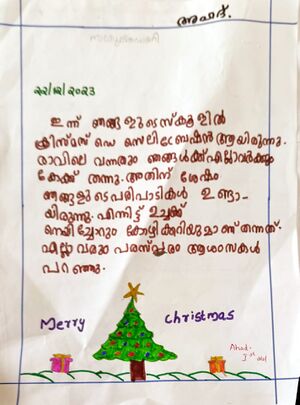 അഹദ്.
22/12/2023
ഇന്ന് ഞങ്ങളുടെ സ്കൂളിൽ
ക്രിസ്മസ് ഡെ സെലിബ്രേഷൻ ആയിരുന്നു.
രാവിലെ വന്നതും ഞങ്ങൾക്ക് എല്ലാവർക്കും
കേക്ക് തന്നു. അതിന് ശേഷം
ഞങ്ങളുടെ പരിപാടികൾ ഉണ്ടാ-
യിരുന്നു. എന്നിട്ട് ഉച്ചക്ക്
നെയ്ച്ചോറും കോഴിക്കറിയുമാണ് തന്നത്.
എല്ലാവരും പരസ്പരം ആശംസകൾ
പറഞ്ഞു.
Merry Christmas
Ahad.